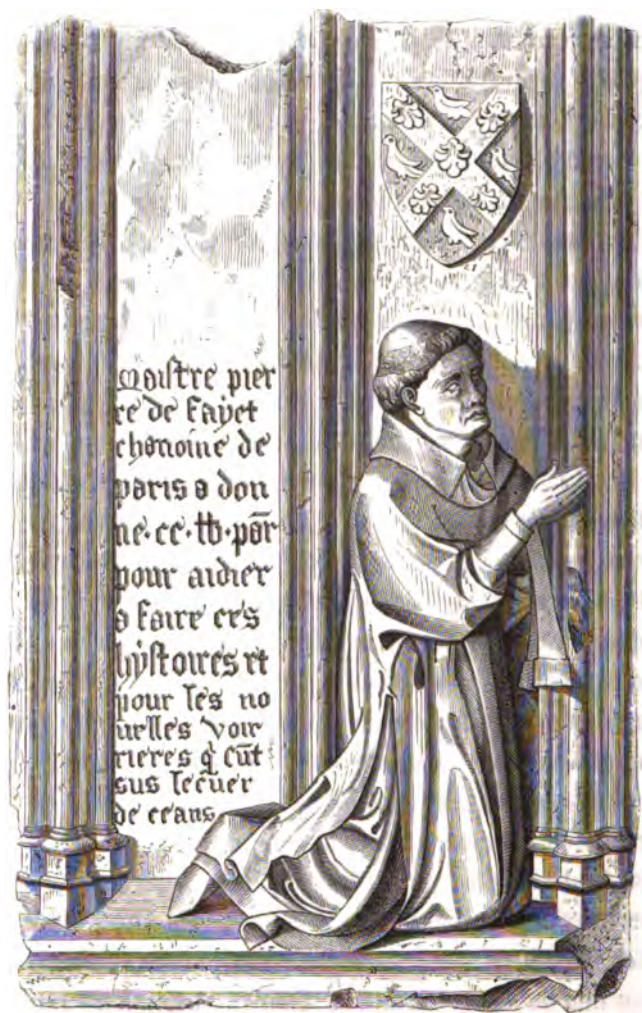 Maistre pier
re de Fayet
chanoine de
paris a don
ne·ce·lb·pār
pour aidier
a faire ces
hystoires et
pour les no
uelles voir
rieres q̄ sūt
sus le cuer
de ceans